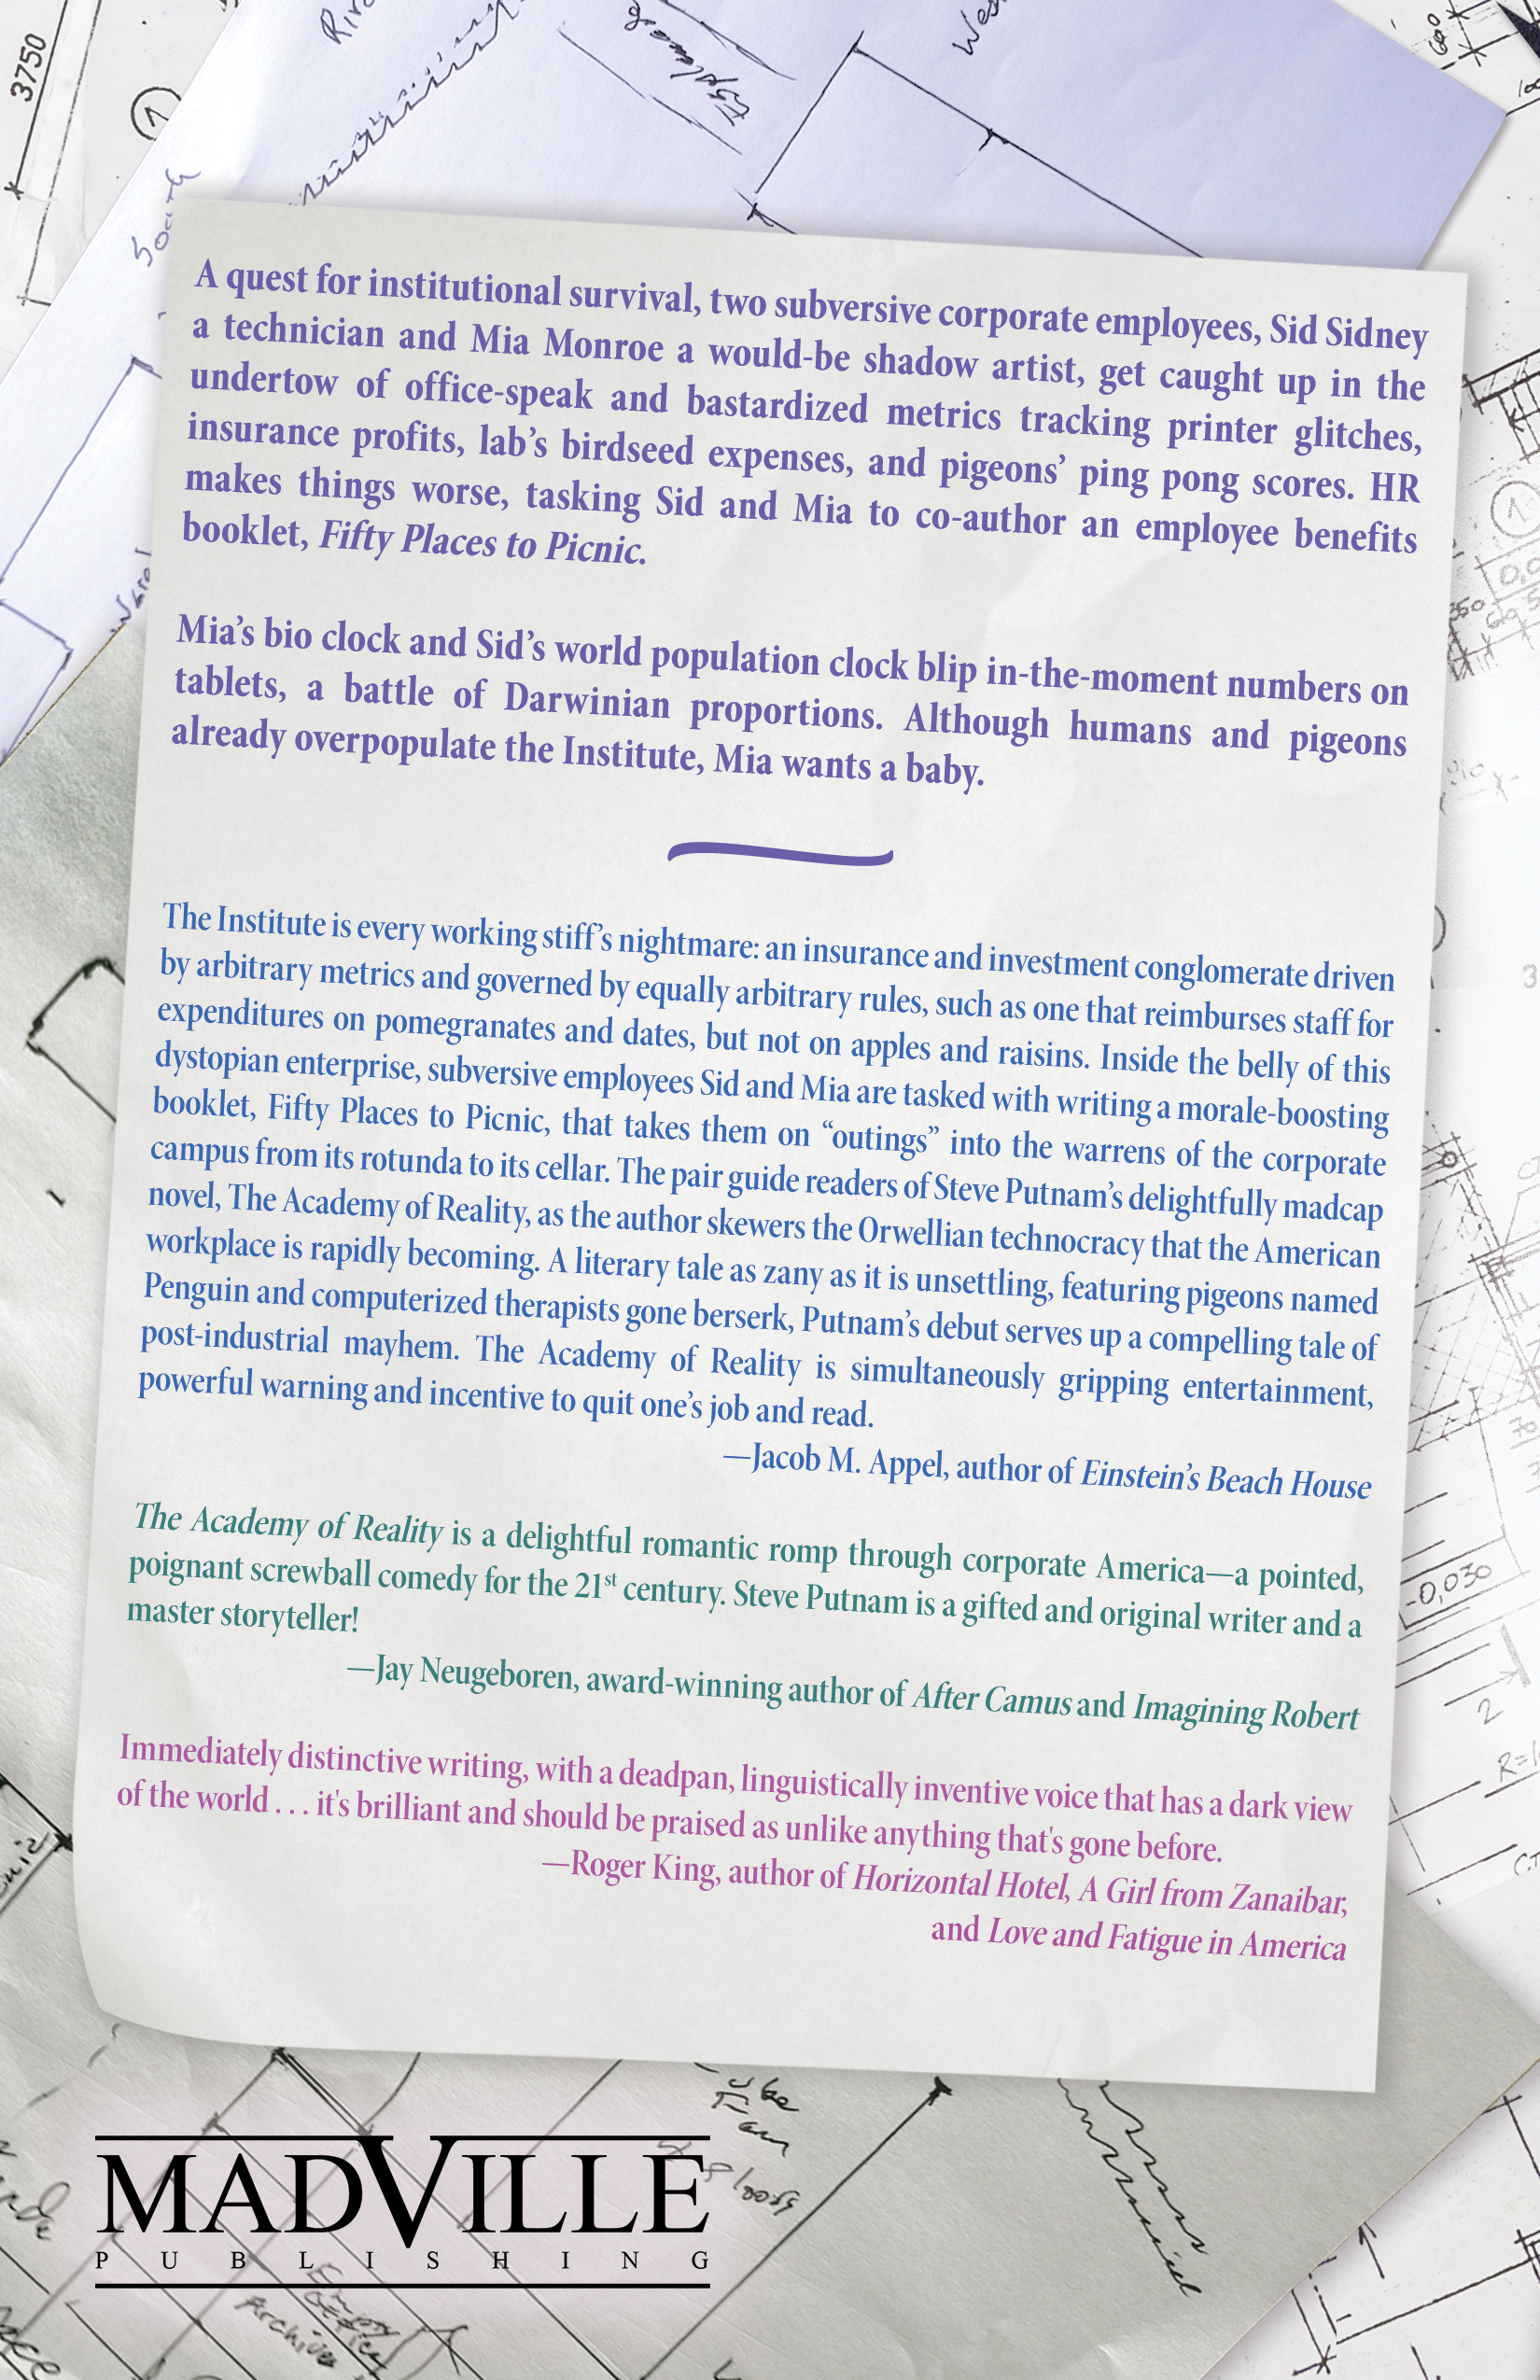 3750
1
South
Fireplace
A quest for institutional survival, two subversive corporate employees, Sid Sidney
a technician and Mia Monroe a would-be shadow artist, get caught up in the
undertow of office-speak and bastardized metrics tracking printer glitches,
insurance profits, lab’s birdseed expenses, and pigeons’ ping pong scores. HR
makes things worse, tasking Sid and Mia to co-author an employee benefits
booklet, Fifty Places to Picnic.
Mia’s bio clock and Sid’s world population clock blip in-the-moment numbers on
tablets, a battle of Darwinian proportions. Although humans and pigeons
already overpopulate the Institute, Mia wants a baby.
The Institute is every working stiff’s nightmare: an insurance and investment conglomerate driven
by arbitrary metrics and governed by equally arbitrary rules, such as one that reimburses staff for
expenditures on pomegranates and dates, but not on apples and raisins. Inside the belly of this
dystopian enterprise, subversive employees Sid and Mia are tasked with writing a morale-boosting
booklet, Fifty Places to Picnic, that takes them on “outings” into the warrens of the corporate
campus from its rotunda to its cellar. The pair guide readers of Steve Putnam’s delightfully madcap
novel, The Academy of Reality, as the author skewers the Orwellian technocracy that the American
workplace is rapidly becoming. A literary tale as zany as it is unsettling, featuring pigeons named
Penguin and computerized therapists gone berserk, Putnam’s debut serves up a compelling tale of
post-industrial mayhem. The Academy of Reality is simultaneously gripping entertainment,
powerful warning and incentive to quit one’s job and read.
—Jacob M. Appel, author of Einstein’s Beach House
The Academy of Reality is a delightful romantic romp through corporate America—a pointed,
poignant screwball comedy for the 21st century. Steve Putnam is a gifted and original writer and a
master storyteller!
—Jay Neugeboren, award-winning author of After Camus and Imagining Robert
-0,030
2
Immediately distinctive writing, with a deadpan, linguistically inventive voice that has a dark view
of the world . . . it's brilliant and should be praised as unlike anything that's gone before.
—Roger King, author of Horizontal Hotel, A Girl from Zanaibar,
and Love and Fatigue in America
MADVILLE
PUBLISHING
Empty
Office
Archives